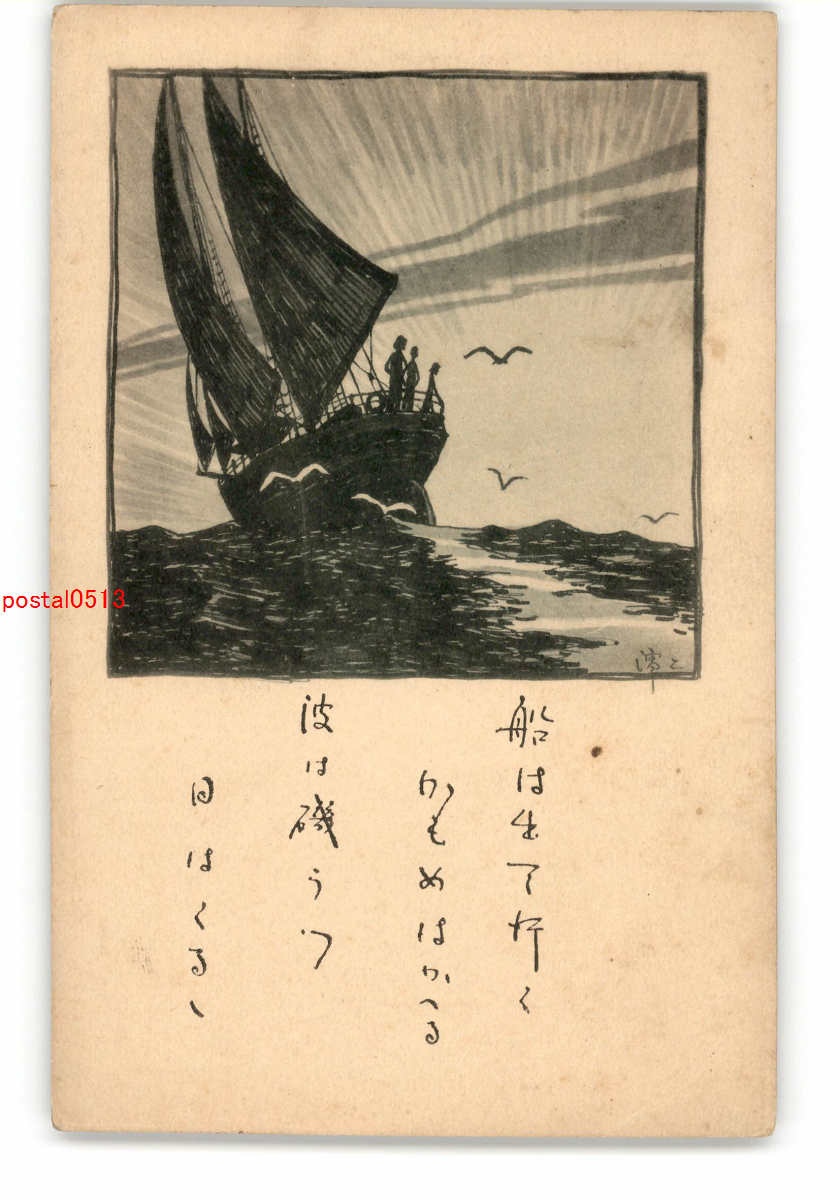 船は出て行く
かもめはかへる
波は磯うつ
日はくるゝ
postal0513